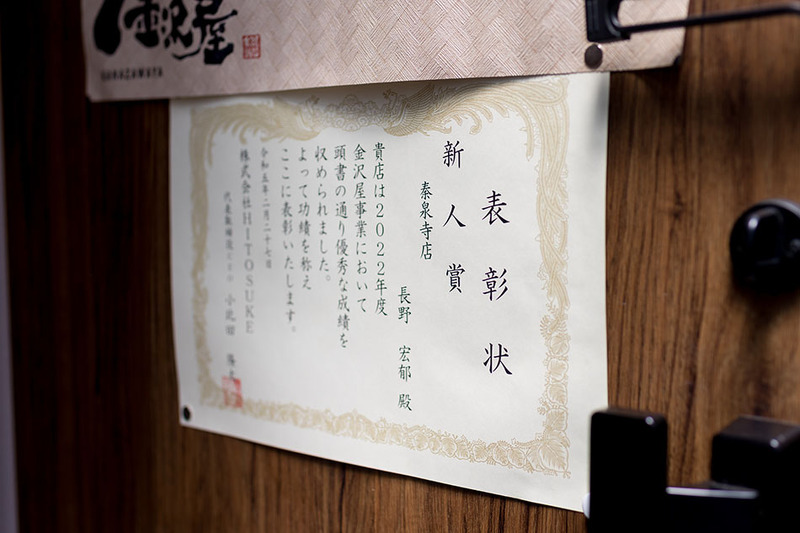 金沢屋
KANAZAWAYA
表彰状
新人賞
秦泉寺店
長野 宏郁 殿
貴店は2022年度
金沢屋事業において
頭書の通り優秀な成績を
収められました。
よって功績を称え
ここに表彰いたします。
令和五年二月二十七日
株式会社HITOSUKE
代表取締役